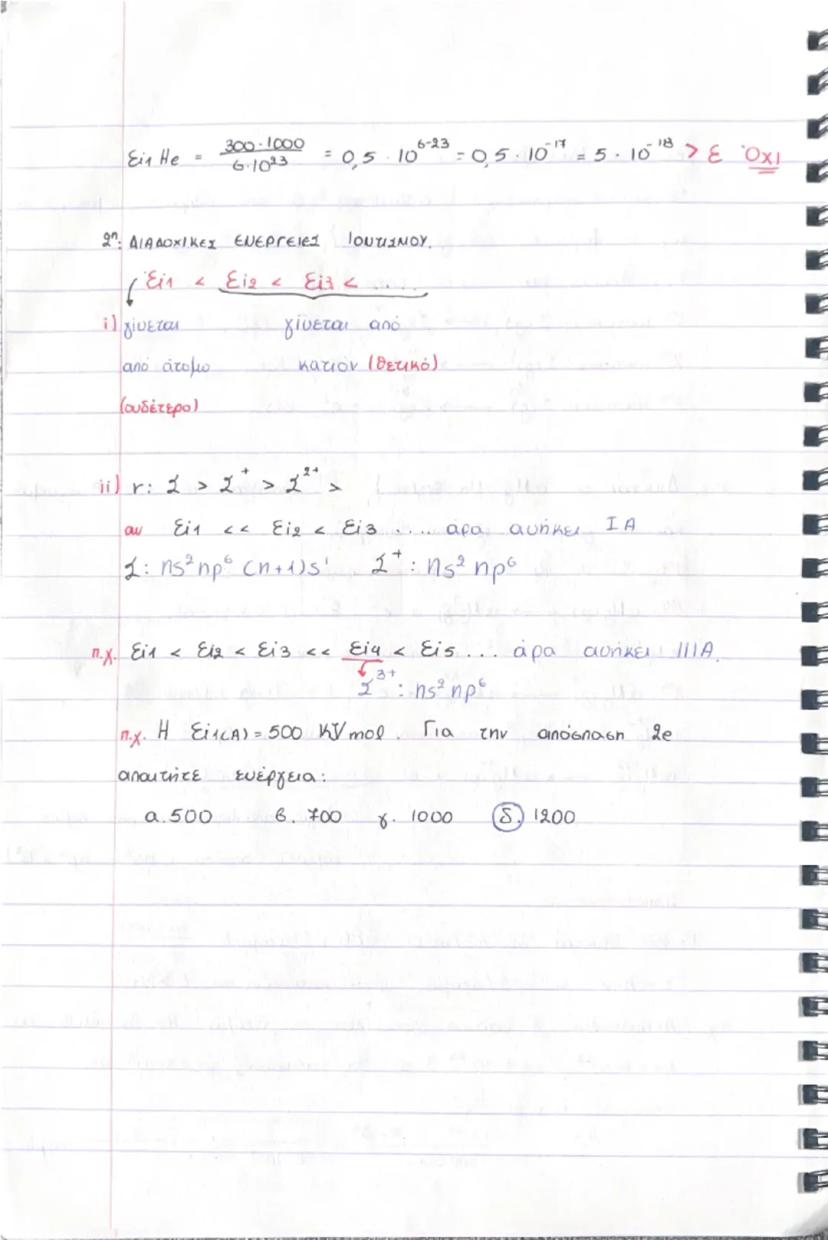 Ei1 He = 300·1000 / 6·10²³ = 0,5 · 10⁶⁻²³ = 0,5 · 10⁻¹⁷ = 5 · 10⁻¹⁸ > E Όχι
2η: ΔΙΑΔΟΧΙΚΕΣ ΕΝΕΡΓΕΙΕΣ ΙΟΝΤΙΣΜΟΥ.
Ei1 < Ei2 < Ei3 < ....
i) γίνεται γίνεται από
από άτομο κατιόν (θετικό)
(ουδέτερο)
ii) r: Σ > Σ⁺ > Σ²⁺ >
αν Ei1 << Ei2 < Ei3 .... άρα ανήκει IA
Σ: ns²np⁶ (n+1)s¹ Σ⁺: ns² np⁶
π.χ. Ei1 < Ei2 < Ei3 << Ei4 < Ei5 ... άρα ανήκει IIIA.
Σ³⁺: ns² np⁶
π.χ. Η Ei1(A) = 500 KJ/mol. Για την απόσπαση 2e
απαιτήτε ενέργεια:
α. 500 β. 700 γ. 1000 δ. 1200